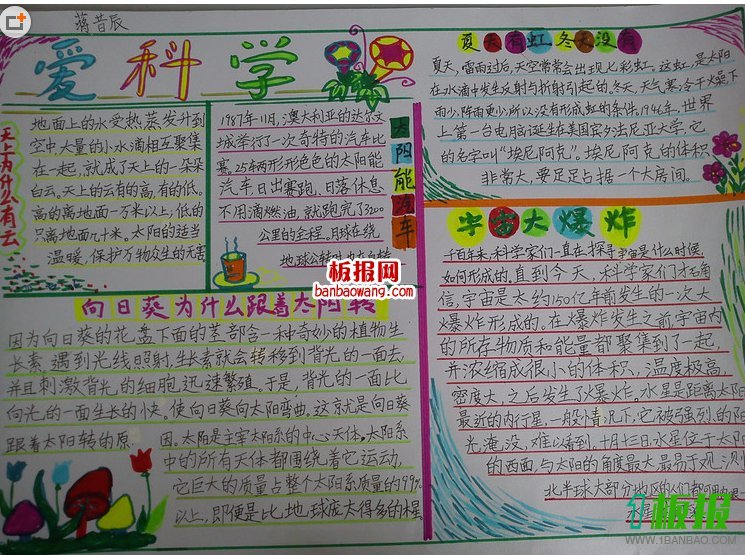 蒋昔辰
爱科学
天上为什么有云
地面上的水受热蒸发升到
空中大量的小水滴相互聚集
在一起,就成了天上的一朵朵
白云。天上的云有的高,有的低。
高的离地面一万米以上,低的
只离地面几十米。太阳的适当
温暖,保护万物众生的无害
1987年11月,澳大利亚的达尔文
城举行了一次奇特的汽车比
赛。25车两形形色色的太阳能
汽车日出赛跑,日落休息
不用滴燃油,就跑完了3200
公里的全程。月球在绕
太阳能汽车
夏天有虹 冬天没有
夏天,雷雨过后,天空常常会出现七彩虹。这虹,是太阳
在水滴中发生反射与折射引起的。冬天,天气寒冷干燥下
雨少,阵雨更少,所以没有形成虹的条件。1946年,世界
上第一台电脑诞生在美国宾夕法尼亚大学,它
的名字叫“埃尼阿克”。埃尼阿克的体积
非常大,要足足占据一个大房间。
板报网
banbaowang.com
向日葵为什么跟着太阳转
因为向日葵的花盘下面的茎部含一种奇妙的植物生
长素。遇到光线照射,生长素就会转移到背光的一面去,
并且刺激背光的细胞迅速繁殖。于是,背光的一面比
向光的一面生长的快。使向日葵向太阳弯曲。这就是向日葵
跟着太阳转的原因。太阳是主宰太阳系的中心天体。太阳系
中的所有天体都围绕着它运动,
它巨大的质量占整个太阳系质量的99%
以上,即便是比地球庞大得多的木星
宇宙大爆炸
千百年来,科学家们一直在探寻宇宙是什么时候,
如何形成的。直到今天,科学家们才确
信,宇宙是大约150亿年前发生的一次大
爆炸形成的。在爆炸发生之前,宇宙内
的所存物质和能量都聚集到了一起,
并浓缩成很小的体积,温度极高,
密度大,之后发生了爆炸。水星是距离太阳
最近的内行星,一般情况下,它被强烈的阳
光淹没,难以看到十月十三日,水星位于太阳
的西面,与太阳的角度最大,最易于观测
北半球大部分地区的人们都
板报
WWW.1BANBAO.COM